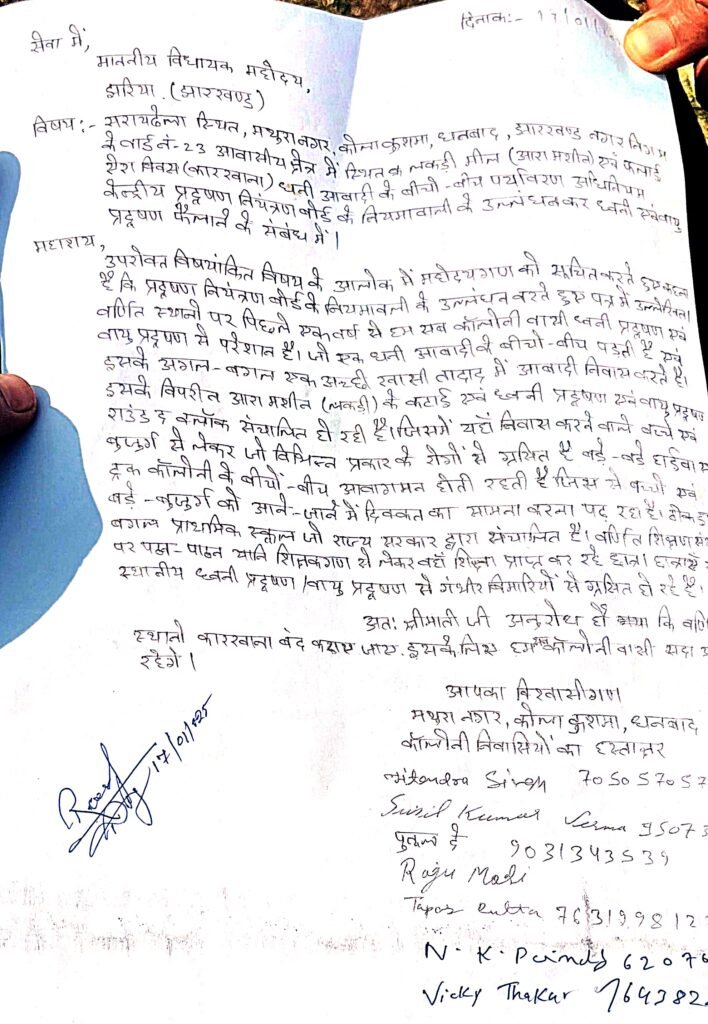 दिनांक:- 17/01/
सेवा में,
माननीय विधायक महोदय,
झरिया (झारखण्ड)
विषय:- सरायढेला स्थित, मथुरानगर, कोलाकुशमा, धनबाद, झारखण्ड नगर निगम
के वार्ड नं-23 आवासीय क्षेत्र में स्थित क लकड़ी मील (आरा मशीन) एवं फलाई
ऐश विक्स (कारखाना) धनी आवादी के बीचो-बीच पर्यावरण अधिनियम
केन्द्रीय प्रदूषण नियंत्रण बोर्ड के नियमावली के उल्लंघन कर ध्वनी एवं वायु
प्रदूषण फैलाने के संबंध में।
महाशय,
उपरोक्त विषयांकित विषय के आलोक में महोदयगण को सूचित करते हुए कहना
है कि प्रदूषण नियंत्रण बोर्ड के नियमावली के उल्लंघन करते हुए पत्र में उल्लेखित
वर्णित स्थानो पर पिछले एक वर्ष से हम सब कॉलोनी वासी ध्वनी प्रदूषण एवं
वायु प्रदूषण से परेशान है। जो एक धनी आवादी के बीचो-बीच पड़ती है एवं
इसके अगल-बगल एक अच्छी खासी तादाद में आबादी निवास करते है।
इसके विपरीत आरा मशीन (लकड़ी) के कटाई एवं ध्वनी प्रदूषण एवं वायु प्रदूषण
राउंड द क्लॉक संचालित हो रही है। जिसमें यहाँ निवास करने वाले बच्चे एवं
बुजुर्ग से लेकर जो विभिन्न प्रकार के रोगों से ग्रसित है बड़े-बड़े हाईवा एवं
ट्रक कॉलोनी के बीचों-बीच आवागमन होती रहती है जिस से बच्चो एवं
बड़े-बुजुर्ग को आने-जाने में दिक्कत का सामना करना पड़ रहा है। ठीक
बगल प्राथमिक स्कूल जो राज्य सरकार द्वारा संचालित है। वर्णित शिक्षण
पर पठन-पाठन यानि शिक्षकगण से लेकर वहाँ शिक्षा प्राप्त कर रहे छात्र। छात्राएँ
स्थानीय ध्वनी प्रदूषण/वायु प्रदूषण से गंभीर बिमारियों से ग्रसित हो रहे है।
अत: श्रीमाती जी अनुरोध है कि
स्थानो कारखाना बंद कराए जाए. इसके लिए हम सब कॉलोनी वासी सदा
रहेगे।
आपका विश्वासीगण
मथुरा नगर, कोला कुशमा, धनबाद
कॉलोनी निवासियों का हस्ताक्षर
Jitendra Singh 705057057
Sunil Kumar Verma 95073
पुतुल दे 9031343539
Raju Modi
Tapas Dutta 763199812
N. K. 62076
Vicky Thakur 764382
17/01/25